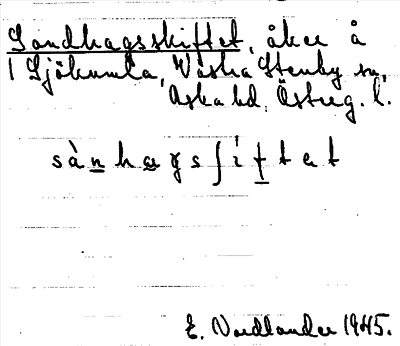 Sandhagsskiftet, åker å
1 Sjökumla, Västra Stenby sn,
Aska hd, Österg. l.
sànhagsʃiftet
E. Nordlander 1945.